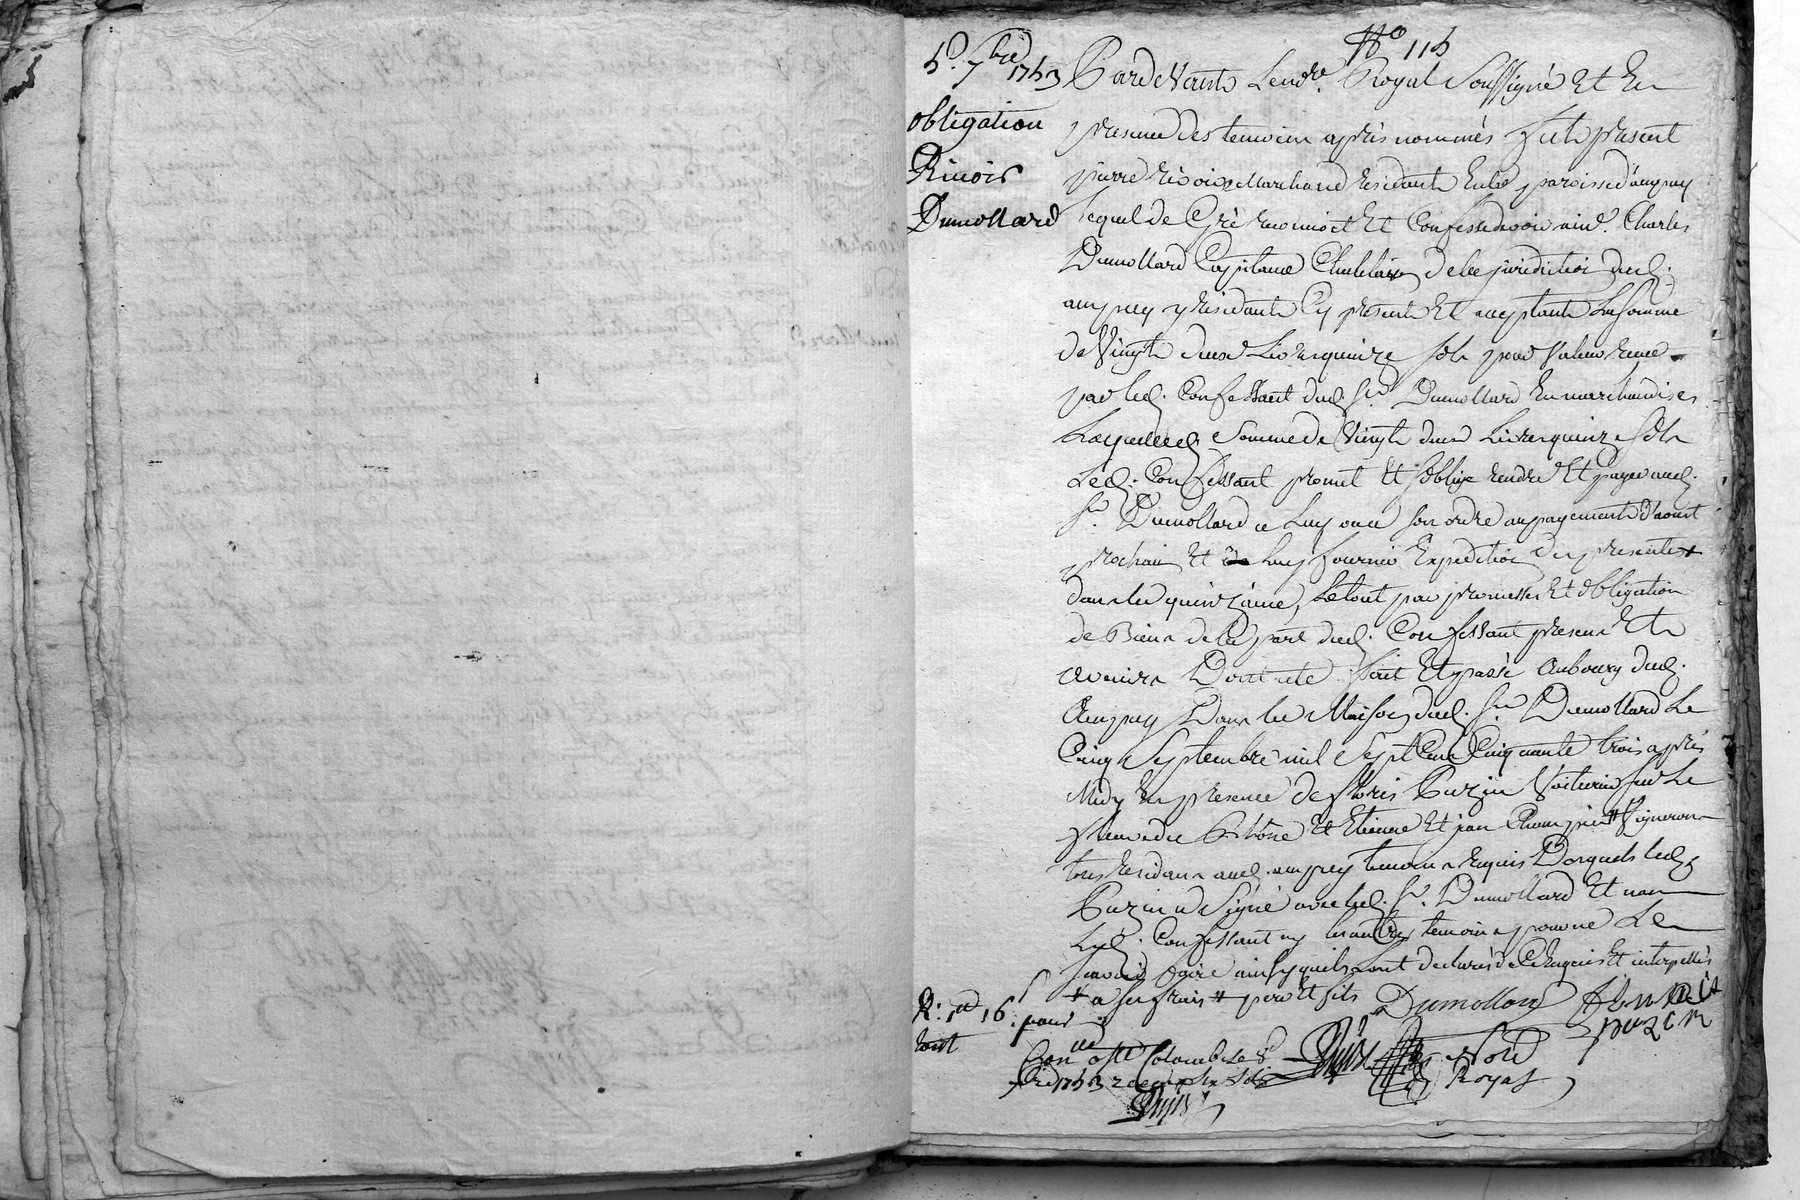 No 115
5e. 7bre 1753
obligation
Rivoir
Dumollard
Pardevant Le nore. Royal Soussigné Et En
presence des temoins après nommés fut present
pierre rivoire Marchand residant En la paroisse d'ampuy
Lequel de Gré reconnoit Et Confesse devoir a me. Charles
Dumollard Capitaine Chatelain de la juridiction dud.
ampuy y residant Cy present Et acceptant La Somme
de Vingt deux Livres quinze sols pour Valeur receue
par led. Confessant dud. sr. Dumollard En marchandises
Laquelle Somme de Vingt deux Livres quinze sols
Led. Confessant promet Et s'oblige rendre Et payer aud.
sr. Dumollard a Luy ou a son ordre au payement d'aoust
prochain Et Luy fournir Expedition des presentes +
dans la quinzaine, Le tout par promesse Et obligation
de Biens de la part dud. Confessant presens Et
avenirs Dont acte fait Et passé Au bourg dud.
Ampuy Dans la Maison dud. sr. Dumollard Le
Cinq Septembre mil Sept Cent Cinquante trois après
Midy En presence de floris Puzin Voiturier sur Le
fleuve du Rhône Et Etienne Et jean # Vigneron
tous residans aud. ampuy temoins requis Desquels led.
Puzin a Signé avec led. sr. Dumollard Et non
Led. Confessant ny Les autres temoins pour ne Le
Savoir faire ainsy quils ont declarés de Ce Enquis Et interpellés
+ a ses frais # pere Et fils Dumollard floris
puzin
Con.lle a Ste Colombe Le 8e
7bre 1753 recu
Nore
Royal